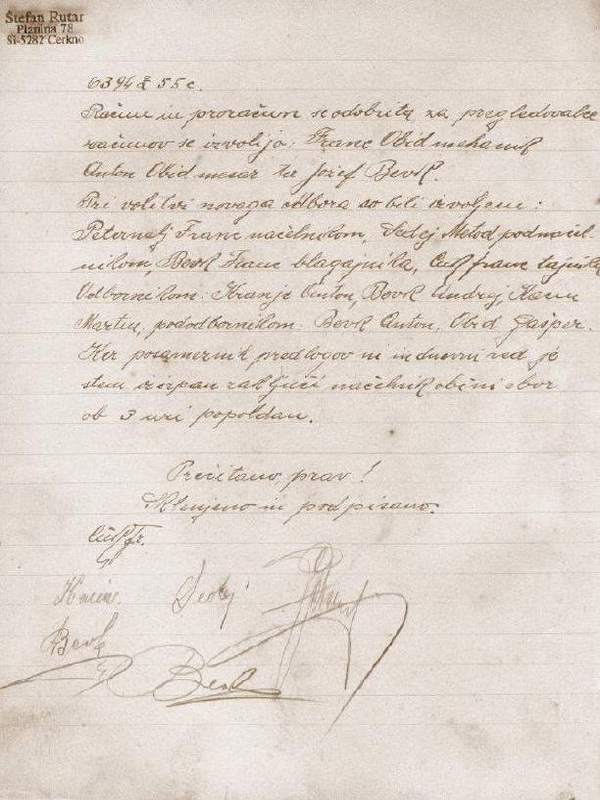 Štefan Rutar
Planina 78
SI-5282 Cerkno
6394 £ 55 c.
Račun in proračun se odobrita za pregledovalce
računov se izvolijo: Franc Obid mehanik
Anton Obid mesar ter Jožef Bevk.
Pri volitvi novega odbora so bili izvoljeni:
Peternelj Franc načelnikom, Sedej Metod podnačel-
nikom, Bevk Franc blagajnika, Čuk Franc tajnika
Odbornikom: Kranjc Anton, Bevk Andrej
Martin, pododbornikom: Bevk Anton, Obid Gašper.
Ker posameznik predlogov ni in dnevni red je
s tem izčrpan zaključi načelnik občni zbor
ob 3 uri popoldan.
Prečitano, prav!
Sklenjeno in podpisano.
Čuk Fr.
Sedej
Bevk
Bevk